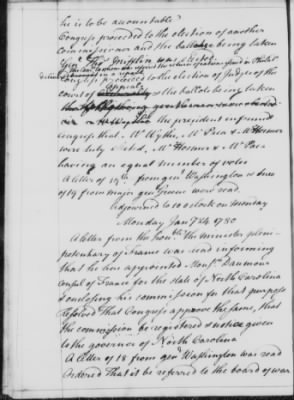 he is to be accountable
Congress proceeded to the election of another
Commissioner and the ballots being taken
Cyrus Griffin was elected
Congress proceeded to the election of Judges of the
court of appeals & the ballots being taken
the president informed
congress that Mr Wythe, Mr Paca & Mr Hosmer
were duly elected, Mr Hosmer & Mr Paca
having an equal number of votes
A letter of 19th from genl Washington & one
of 19 from major genl Greene were read.
Adjourned to 10 o Clock on Monday
Monday Jany 24 1780
A letter from the honble the minister pleni-
potentiary of France was read informing
that he has appointed Monsr Danmours
Consul of France for the state of North Carolina
& enclosing his commission for that purpose
Resolved That Congress approve the same, that
the commission be registered & notice given
to the governor of North Carolina
A letter of 18 from genl Washington was read
Ordered That it be referred to the board of war